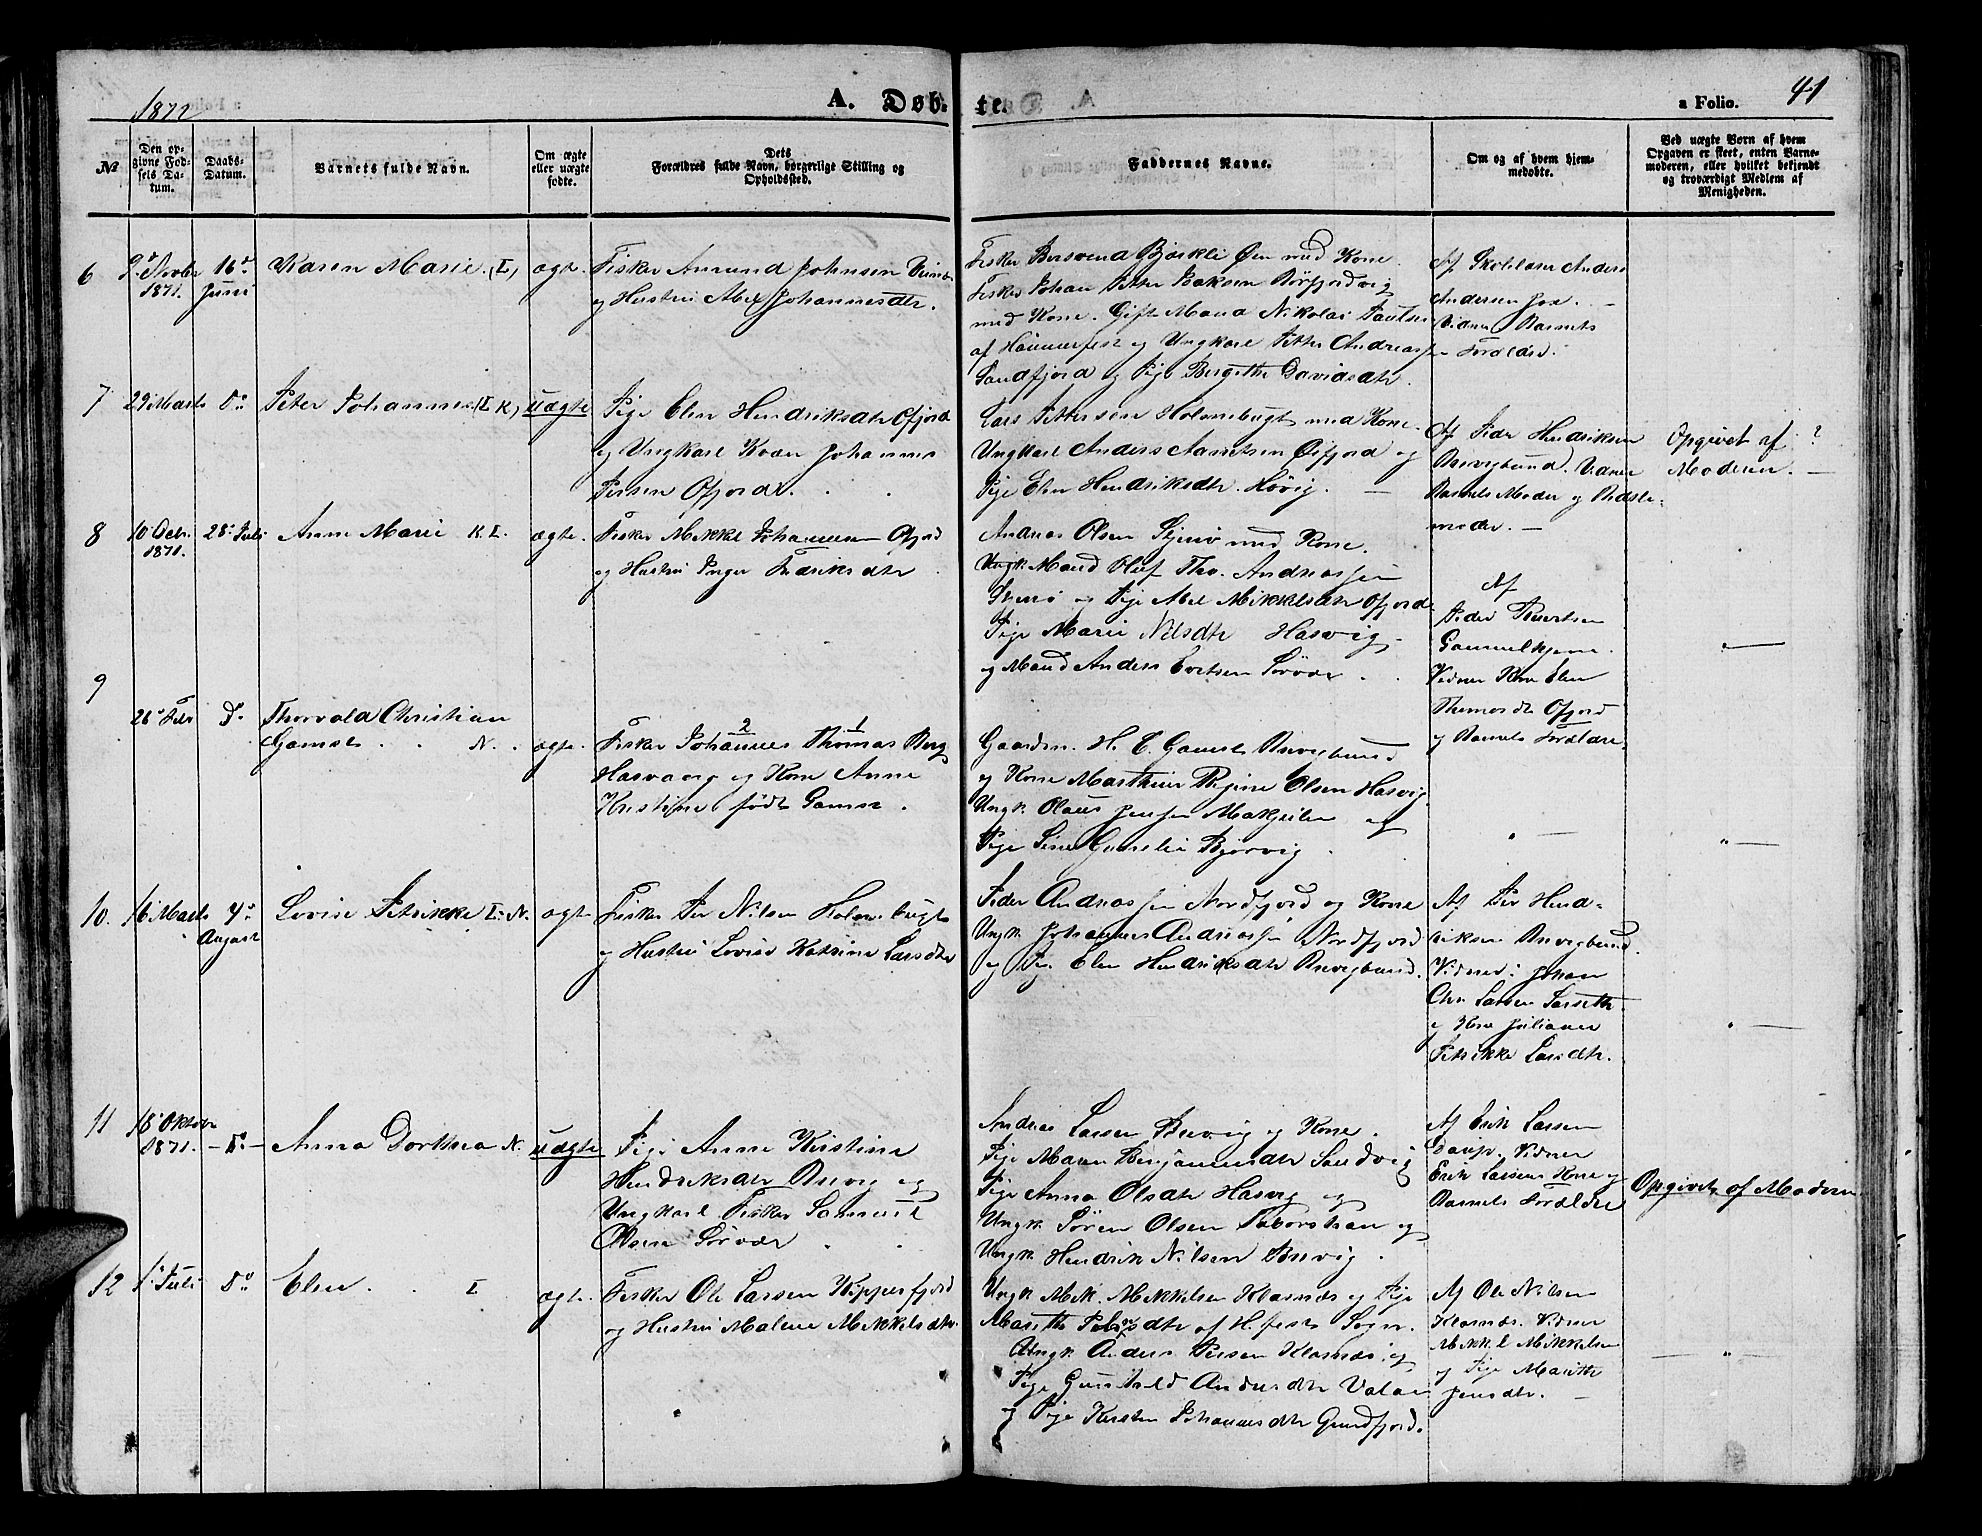 1872
A. Døb-
te.
a Folio. 41
№
Den op-
givne Fød-
sels Da-
tum.
Daabs-
Datum.
Barnets fulde Navn.
Om ægte
eller uægte
fødte.
Dets
Forældres fulde Navn, borgerlige Stilling og
Opholdssted.
Faddernes Navne.
Om og af hvem hjem-
medøbte.
Ved uægte Børn af hvem
Opgaven er skeet, enten Barne-
moderen, eller hvilket bekjendt
og troværdigt Medlem af
Menigheden.
6
9de Novbr
1871.
16de
Juni
Karen Marie. (L)
ægte.
Fisker Amund Johnsen
og Hustru Abel Johannesdtr.
Fisker Bersvend Bjørkli Øen med Kone.
Fisker Johan Petter Isaksen Børfjordvig
med Kone. Gift Mand Nikolai Paulsen
af Hammerfest og Ungkarl Petter Andreass.
Sandfjord og Pige Bergethe Davidsdtr.
Af Skolelærer Anders
Andersen
Vidner Barnets
Forældre.
7
29 Marts
Do
Peter Johannes (L K)
uægte
Pige Elen Hendriksdtr Ofjord
og Ungkarl Kvæn Johannes
Persen Ofjord.
Lars Pettersen Holmebugt med Kone.
Ungkarl Anders Amtsen Ofjord og
Pige Elen Hendriksdtr.
Af Peder Hendriksen
Brevigbund. Vidner
Barnets Moder og Bedste-
moder.
Opgivet af ?
Moderen.
8
10 Octr.
1871.
28 Juli
Anne Marie K. L.
ægte.
Fisker Mikkel Johannesen Ofjord
og Hustru Inger Fredriksdtr.
Andreas Olsen Stjernø med Kone.
Ungk. Mand Oluf Tho. Andreassen
og Pige Abel Mikkelsdtr Ofjord
Pige Marie Nilsdtr Hasvig
og Mand Anders Evertsen Sørvær.
Af
Peder
Vidner Kone Elen
Ofjord
og Barnets Forældre
9
26 Febr
Do
Thorvald Christian
Gamst. N.
ægte.
Fisker Johannes 2 Thomas 1 Berg
Hasvaag og Kone Anne
Kristine født Gamst.
Gaardm. H. C. Gamst Brevigbund
og Kone Marthine Regine Olsen Hasvig.
Ungk. Olaus Jensen og
Pige
10.
16 Marts
4de
August
Lovise Petrikke L. N.
ægte
Fisker Per Nilsen Holmebugt
og Hustru Lovise Katrine Larsdtr
Peder Andreassen Nordfjord og Kone
Ungk. Johannes Andreassen Nordfjord
og Pig. Elen Hendriksdtr Brevigbund.
Af Per Hend-
riksen Brevigbund
Vidner: Johan
Chr. Larsen
og Kone Juliane
Petrikke Larsdtr.
11
18 Oktober
1871.
Do
Anna Dorthea N.
uægte
Pige Anne Kristine
Hendriksdtr Brevig og
Ungkarl Fisker Samuel
Olsen Sørvær.
Andreas Larsen Brevig og Kone.
Pige Maren Benjaminsdtr Sandvig
Pige Anna Olsdtr Hasvig og
Ungk. Søren Olsen og
Ungk. Hendrik Nilsen Brevig.
Af Erik Larsen
Vidner
Erik Larsens Kone og
Barnets Forældre
Opgivet af Moderen
12
1 Juli
Do
Elen. L
ægte.
Fisker Ole Larsen Kipperfjord
og Hustru Malene Mikkelsdtr.
Ungk. Mik. Mikkelsen Klasnæs og Pige
Marethe af H.fest Sogn.
Ungk. Anders Persen Klasnæs og
Pige Andersdtr
og Pige Kirsten Johannesdtr Grundfjord.
Af Ole Nilsen
Klasnæs. Vidner
Mikkel Mikkelsen
og Pige Marethe
Jensdtr.